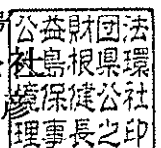 公益財団法
社
人島根県環
境保健公社
彦
理事長之印